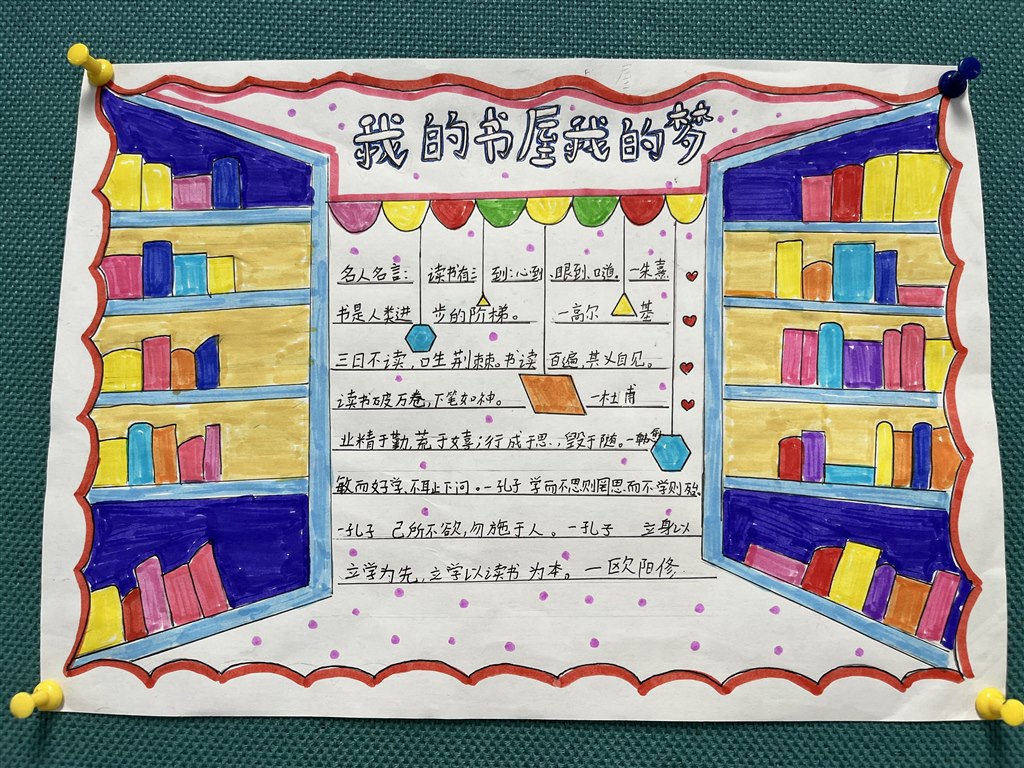 我的书屋我的梦
名人名言: 读书有三到:心到、眼到、口到。—朱熹
书是人类进步的阶梯。 —高尔基
三日不读,口生荆棘。书读百遍,其义自见。
读书破万卷,下笔如神。 —杜甫
业精于勤,荒于嬉;行成于思,毁于随。—韩愈
敏而好学,不耻下问。—孔子 学而不思则罔思而不学则殆。
—孔子 己所不欲,勿施于人。—孔子 立身以
立学为先,立学以读书为本。—欧阳修